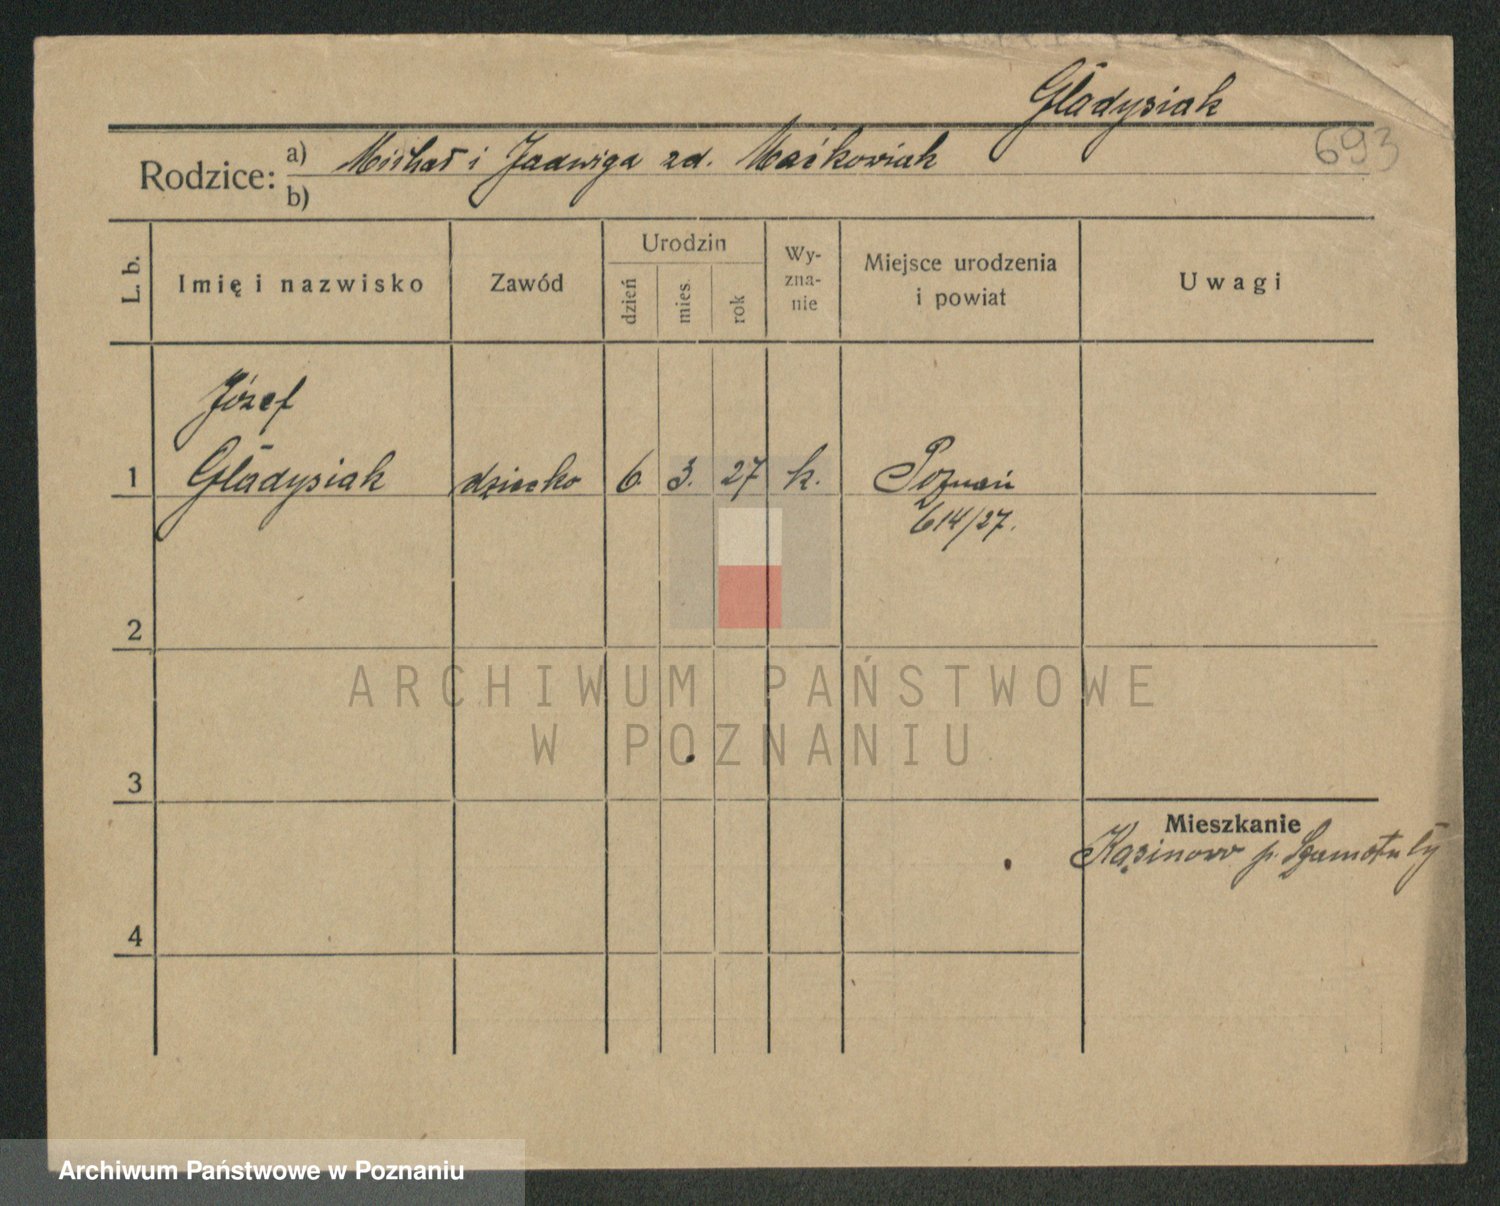 Gładysiak
693
Rodzice:
a) Michał i Jadwiga zd. Maćkowiak
b)
L. b.
Imię i nazwisko
Zawód
Urodzin
dzień
mies.
rok
Wy-
zna-
nie
Miejsce urodzenia
i powiat
Uwagi
Józef
1 Gładysiak dziecko 6. 3. 27 k. Poznań
614/27.
2
ARCHIWUM PAŃSTWOWE
W POZNANIU
3
Mieszkanie
Kąsinowo p. Szamotuły
4
Archiwum Państwowe w Poznaniu